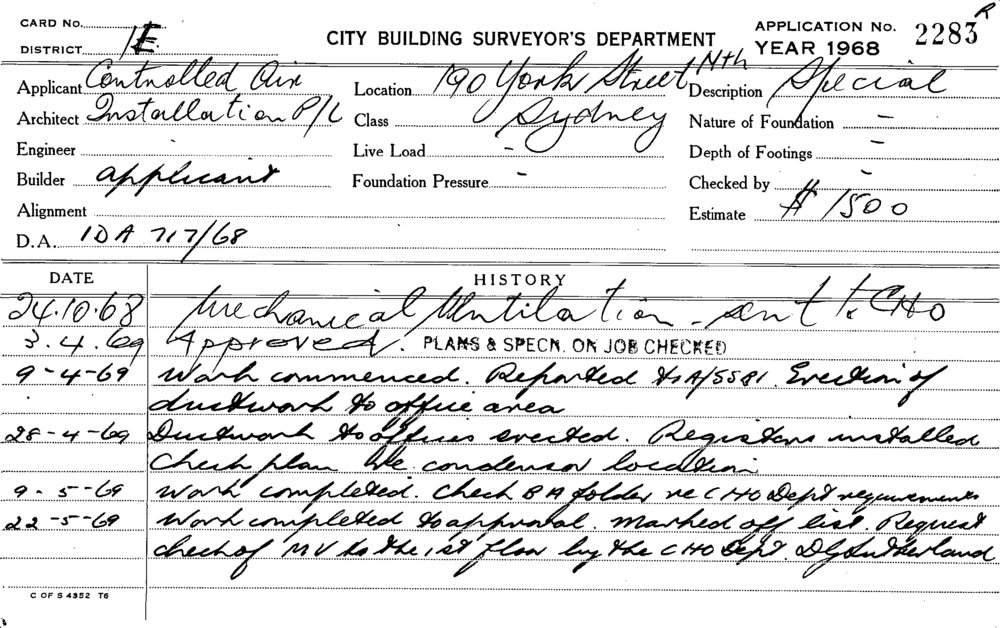 CARD No.
DISTRICT 1E
CITY BUILDING SURVEYOR'S DEPARTMENT
APPLICATION No. 2283 R
YEAR 1968
Applicant Controlled Air
Architect Installation P/L
Engineer -
Builder applicant
Alignment
D.A. IDA 717/68
Location 190 York Street Nth
Class Sydney
Live Load -
Foundation Pressure -
Description Special
Nature of Foundation -
Depth of Footings -
Checked by -
Estimate $ 1500
DATE HISTORY
24.10.68 Mechanical Ventilation - sent to CHO
3.4.69 Approved. PLANS & SPECN. ON JOB CHECKED
9-4-69 Work commenced. Reported to A/SSBI. Erection of
ductwork to office area
28-4-69 Ductwork to offices erected. Registers installed
Check plan re condensor location
9-5-69 Work completed. Check BA folder re CHO Dept requirements
22-5-69 Work completed to approval. Marked off list. Request
check of MV to the 1st floor by the CHO Dept. DG Sutherland
C OF S 4352 T6